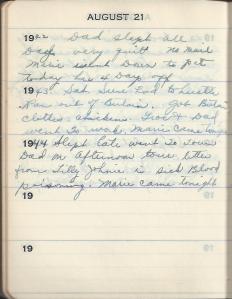 AUGUST 21
1942 Dad slept all
Day very quiet no mail
Marie went Down to get
today his 4 Day off
1943 Sat Sure Lad to
Ran out of Butain. Got Butain
clothes chickens. & Dad
went to wake. Marie came tonight
1944 Slept late went to town
Dad on afternoon tour letter
from Lilly Johnie is sick Blood
poisoning. Marie came tonight
19
19